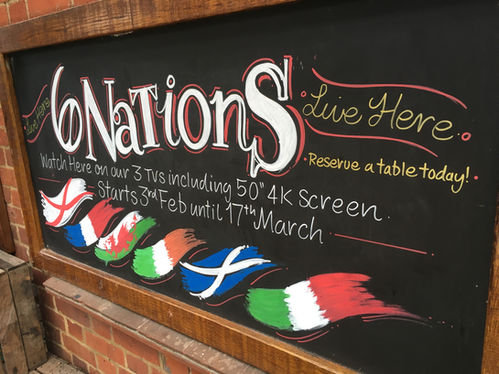 Live Here!
6 Nations
Live Here
Reserve a table today!
Watch Here on our 3 TVs including 50" 4K Screen
Starts 3rd Feb until 17th March